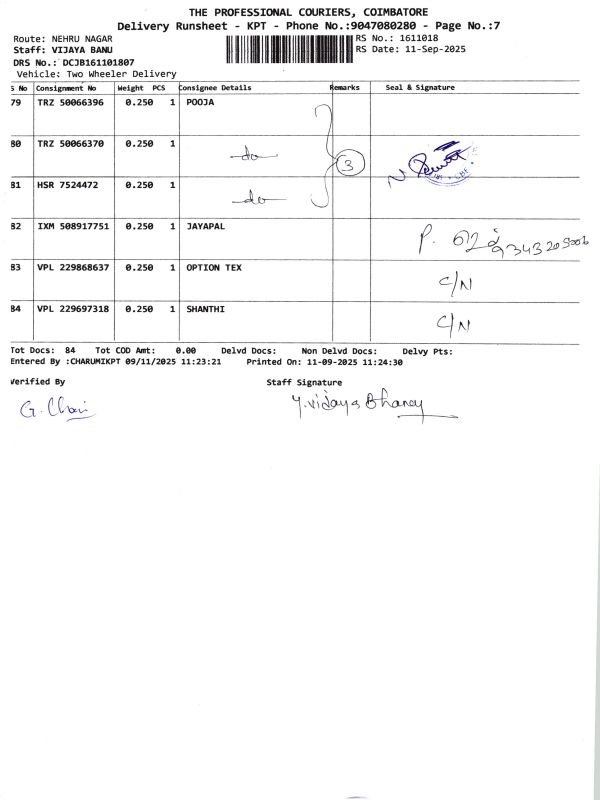 THE PROFESSIONAL COURIERS, COIMBATORE
Delivery Runsheet - KPT - Phone No.:9047080280 - Page No.:7
Route: NEHRU NAGAR RS No.: 1611018
Staff: VIJAYA BANU RS Date: 11-Sep-2025
DRS No.: DCJB161101807
Vehicle: Two Wheeler Delivery
S No Consignment No Weight PCS Consignee Details Remarks Seal & Signature
79 TRZ 50066396 0.250 1 POOJA
80 TRZ 50066370 0.250 1 do 3
81 HSR 7524472 0.250 1 do
82 IXM 508917751 0.250 1 JAYAPAL P.
83 VPL 229868637 0.250 1 OPTION TEX C/N
84 VPL 229697318 0.250 1 SHANTHI C/N
Tot Docs: 84 Tot COD Amt: 0.00 Delvd Docs: Non Delvd Docs: Delvy Pts:
Entered By :CHARUMIKPT 09/11/2025 11:23:21 Printed On: 11-09-2025 11:24:30
Verified By Staff Signature